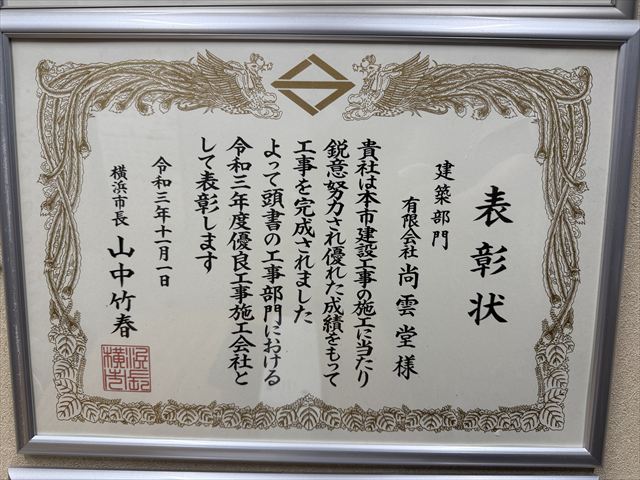 表彰状
建築部門
有限会社 尚雲堂 様
貴社は本市建設工事の施工に当たり
鋭意努力され優れた成績をもって
工事を完成されました
よって頭書の工事部門における
令和三年度優良工事施工会社と
して表彰します
令和三年十一月一日
横浜市長 山中竹春